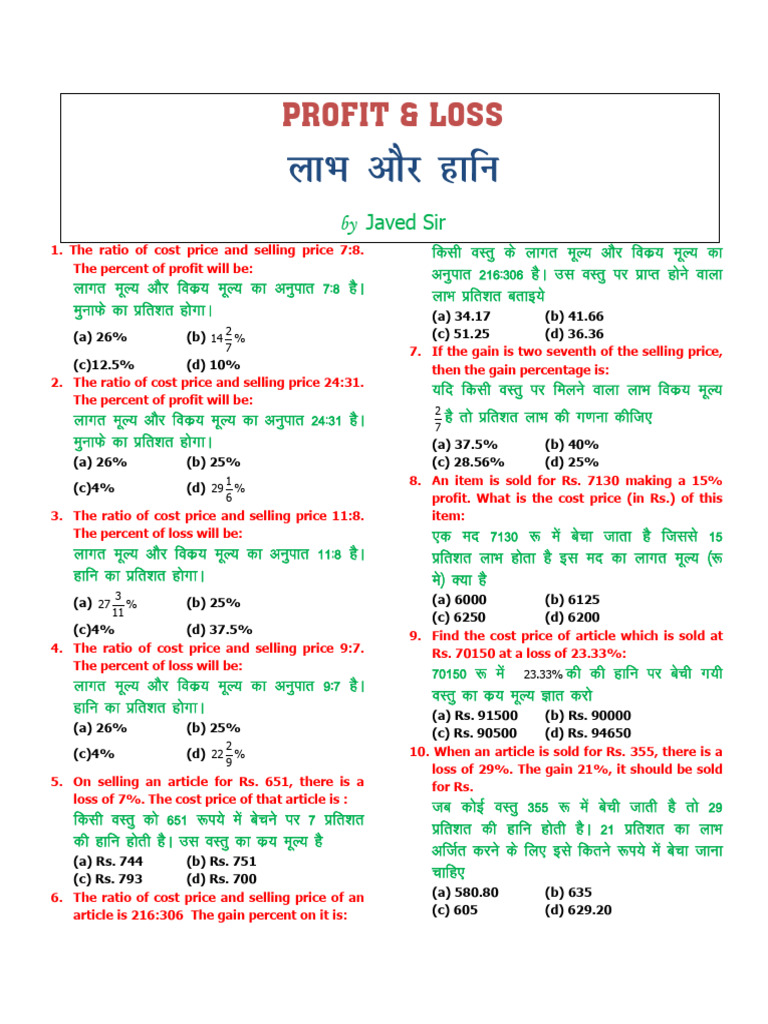 PROFIT & LOSS
लाभ और हानि
by Javed Sir
1. The ratio of cost price and selling price 7:8.
The percent of profit will be:
लागत मूल्य और विक्रय मूल्य का अनुपात 7:8 है।
मुनाफे का प्रतिशत होगा।
(a) 26% (b) 14 2/7 %
(c)12.5% (d) 10%
2. The ratio of cost price and selling price 24:31.
The percent of profit will be:
लागत मूल्य और विक्रय मूल्य का अनुपात 24:31 है।
मुनाफे का प्रतिशत होगा।
(a) 26% (b) 25%
(c)4% (d) 29 1/6 %
3. The ratio of cost price and selling price 11:8.
The percent of loss will be:
लागत मूल्य और विक्रय मूल्य का अनुपात 11:8 है।
हानि का प्रतिशत होगा।
(a) 27 3/11 % (b) 25%
(c)4% (d) 37.5%
4. The ratio of cost price and selling price 9:7.
The percent of loss will be:
लागत मूल्य और विक्रय मूल्य का अनुपात 9:7 है।
हानि का प्रतिशत होगा।
(a) 26% (b) 25%
(c)4% (d) 22 2/9 %
5. On selling an article for Rs. 651, there is a
loss of 7%. The cost price of that article is :
किसी वस्तु को 651 रूपये में बेचने पर 7 प्रतिशत
की हानि होती है। उस वस्तु का क्रय मूल्य है
(a) Rs. 744 (b) Rs. 751
(c) Rs. 793 (d) Rs. 700
6. The ratio of cost price and selling price of an
article is 216:306 The gain percent on it is:
किसी वस्तु के लागत मूल्य और विक्रय मूल्य का
अनुपात 216:306 है। उस वस्तु पर प्राप्त होने वाला
लाभ प्रतिशत बताइये
(a) 34.17 (b) 41.66
(c) 51.25 (d) 36.36
7. If the gain is two seventh of the selling price,
then the gain percentage is:
यदि किसी वस्तु पर मिलने वाला लाभ विक्रय मूल्य
2/7 है तो प्रतिशत लाभ की गणना कीजिए
(a) 37.5% (b) 40%
(c) 28.56% (d) 25%
8. An item is sold for Rs. 7130 making a 15%
profit. What is the cost price (in Rs.) of this
item:
एक मद 7130 रू में बेचा जाता है जिससे 15
प्रतिशत लाभ होता है इस मद का लागत मूल्य (रू
मे) क्या है
(a) 6000 (b) 6125
(c) 6250 (d) 6200
9. Find the cost price of article which is sold at
Rs. 70150 at a loss of 23.33%:
70150 रू में 23.33% की की हानि पर बेची गयी
वस्तु का क्रय मूल्य ज्ञात करो
(a) Rs. 91500 (b) Rs. 90000
(c) Rs. 90500 (d) Rs. 94650
10. When an article is sold for Rs. 355, there is a
loss of 29%. The gain 21%, it should be sold
for Rs.
जब कोई वस्तु 355 रू में बेची जाती है तो 29
प्रतिशत की हानि होती है। 21 प्रतिशत का लाभ
अर्जित करने के लिए इसे कितने रूपये में बेचा जाना
चाहिए
(a) 580.80 (b) 635
(c) 605 (d) 629.20